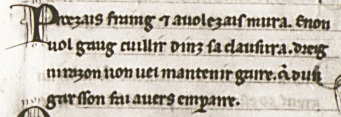 Prezais fruing ⁊ auolezais mura. Enon
uol gaug cuillir dinz sa clausura. dreig
ni razon non uel mantenir gaire.
gar sson fai auers empaire.